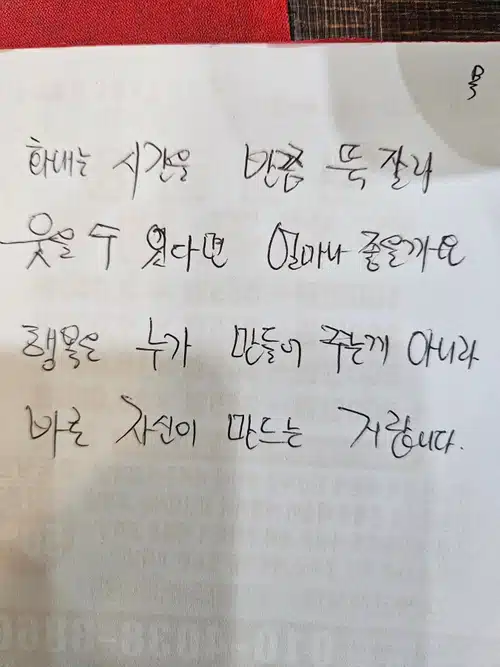 화내는 시간을 반쯤 뚝 잘라
웃을 수 있다면 얼마나 좋을까요
행복은 누가 만들어 주는게 아니라
바로 자신이 만드는 거랍니다.